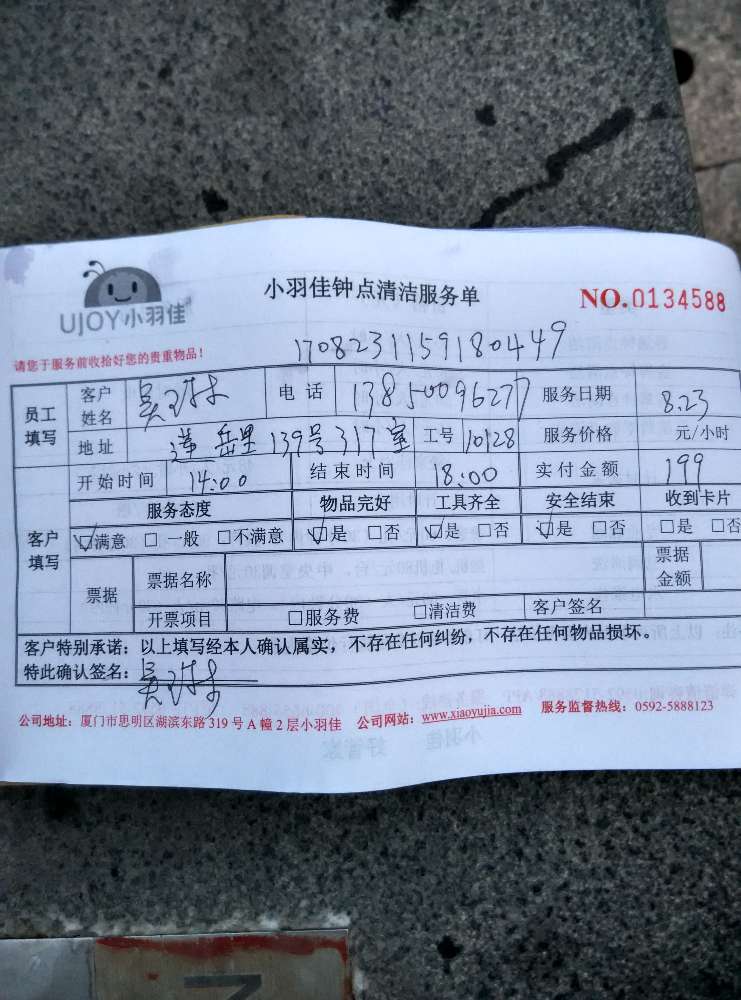 UJOY小羽佳
小羽佳钟点清洁服务单
NO.0134588
请您于服务前收拾好您的贵重物品！
170823115918​0449
员工填写 客户姓名 吴 电话 13850096277 服务日期 8.23
地址 莲岳里139号317室 工号 10128 服务价格 元/小时
开始时间 14:00 结束时间 18:00 实付金额 199
客户填写 服务态度 物品完好 工具齐全 安全结束 收到卡片
☑满意 □一般 □不满意 ☑是 □否 ☑是 □否 ☑是 □否 □是 □否
票据 票据名称 票据金额
开票项目 □服务费 □清洁费 客户签名
客户特别承诺：以上填写经本人确认属实，不存在任何纠纷，不存在任何物品损坏。
特此确认签名：吴
公司地址：厦门市思明区湖滨东路319号A幢2层小羽佳 公司网站：www.xiaoyujia.com 服务监督热线：0592-5888123